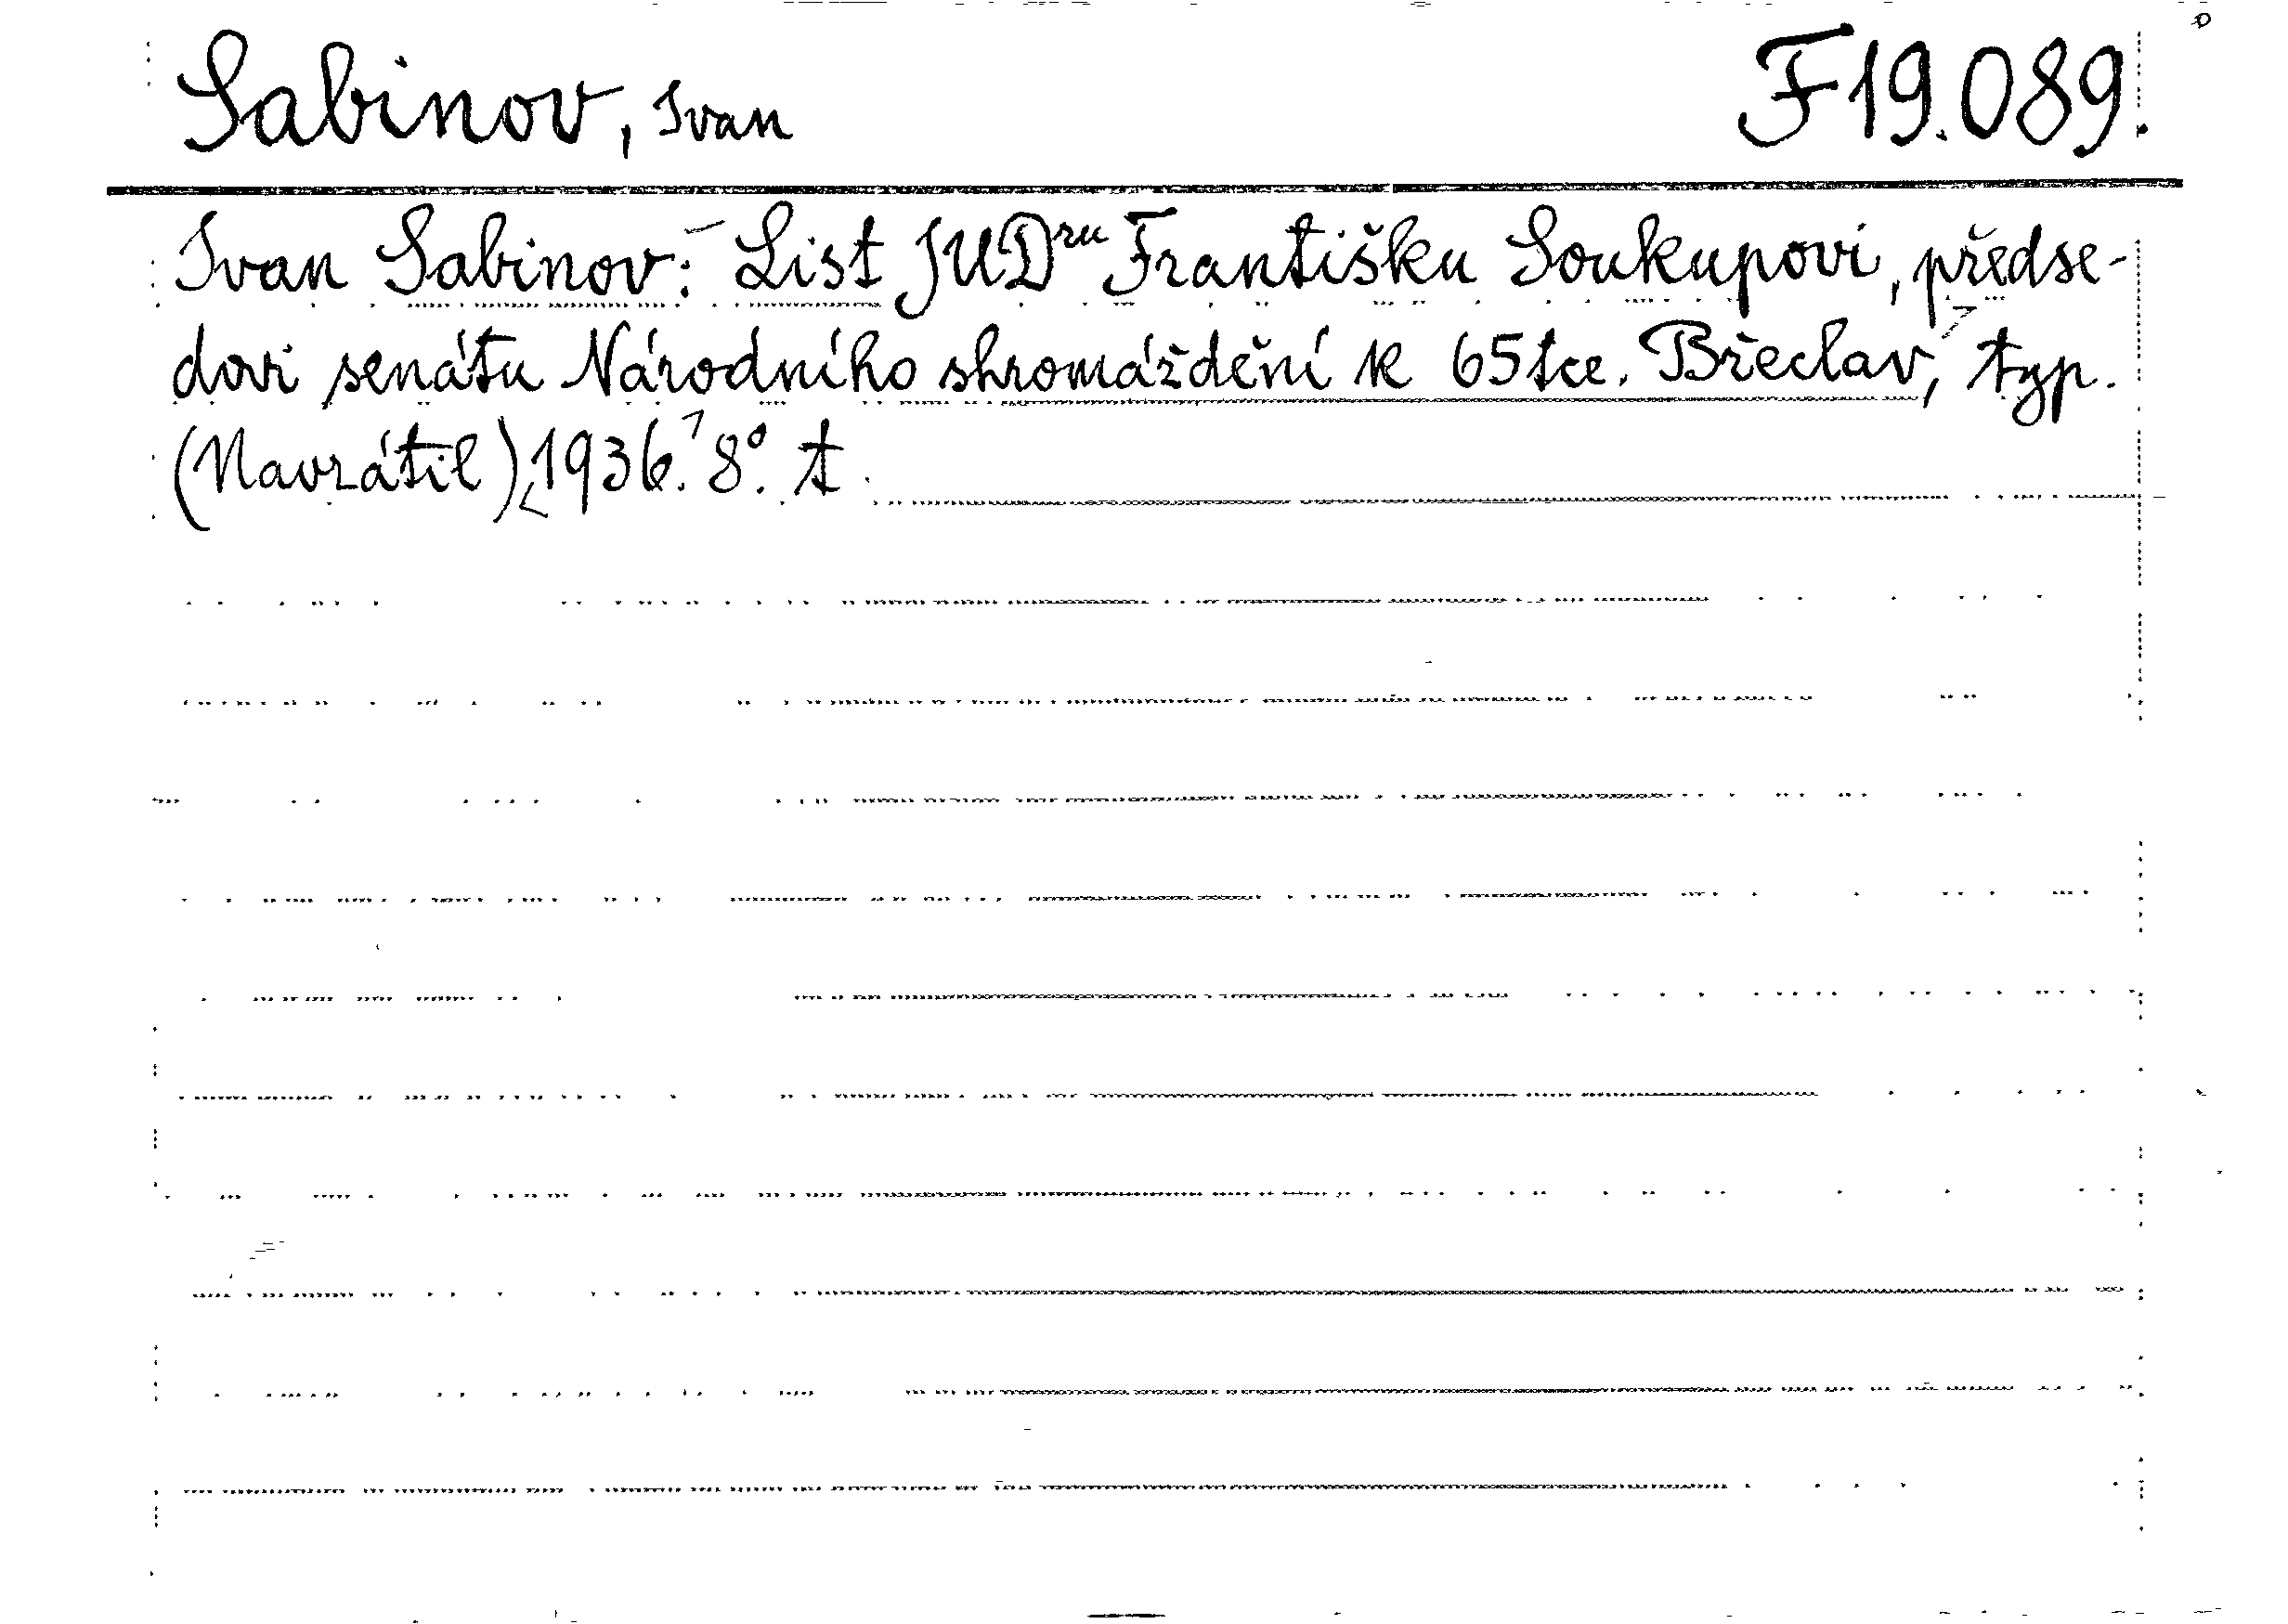 Sabinov, Ivan F 19.089.
Ivan Sabinov: List JUDru Františku Soukupovi, předse-
dovi senátu Národního shromáždění k 65tce. Břeclav, typ.
(Navrátil), 1936. 8°. t.